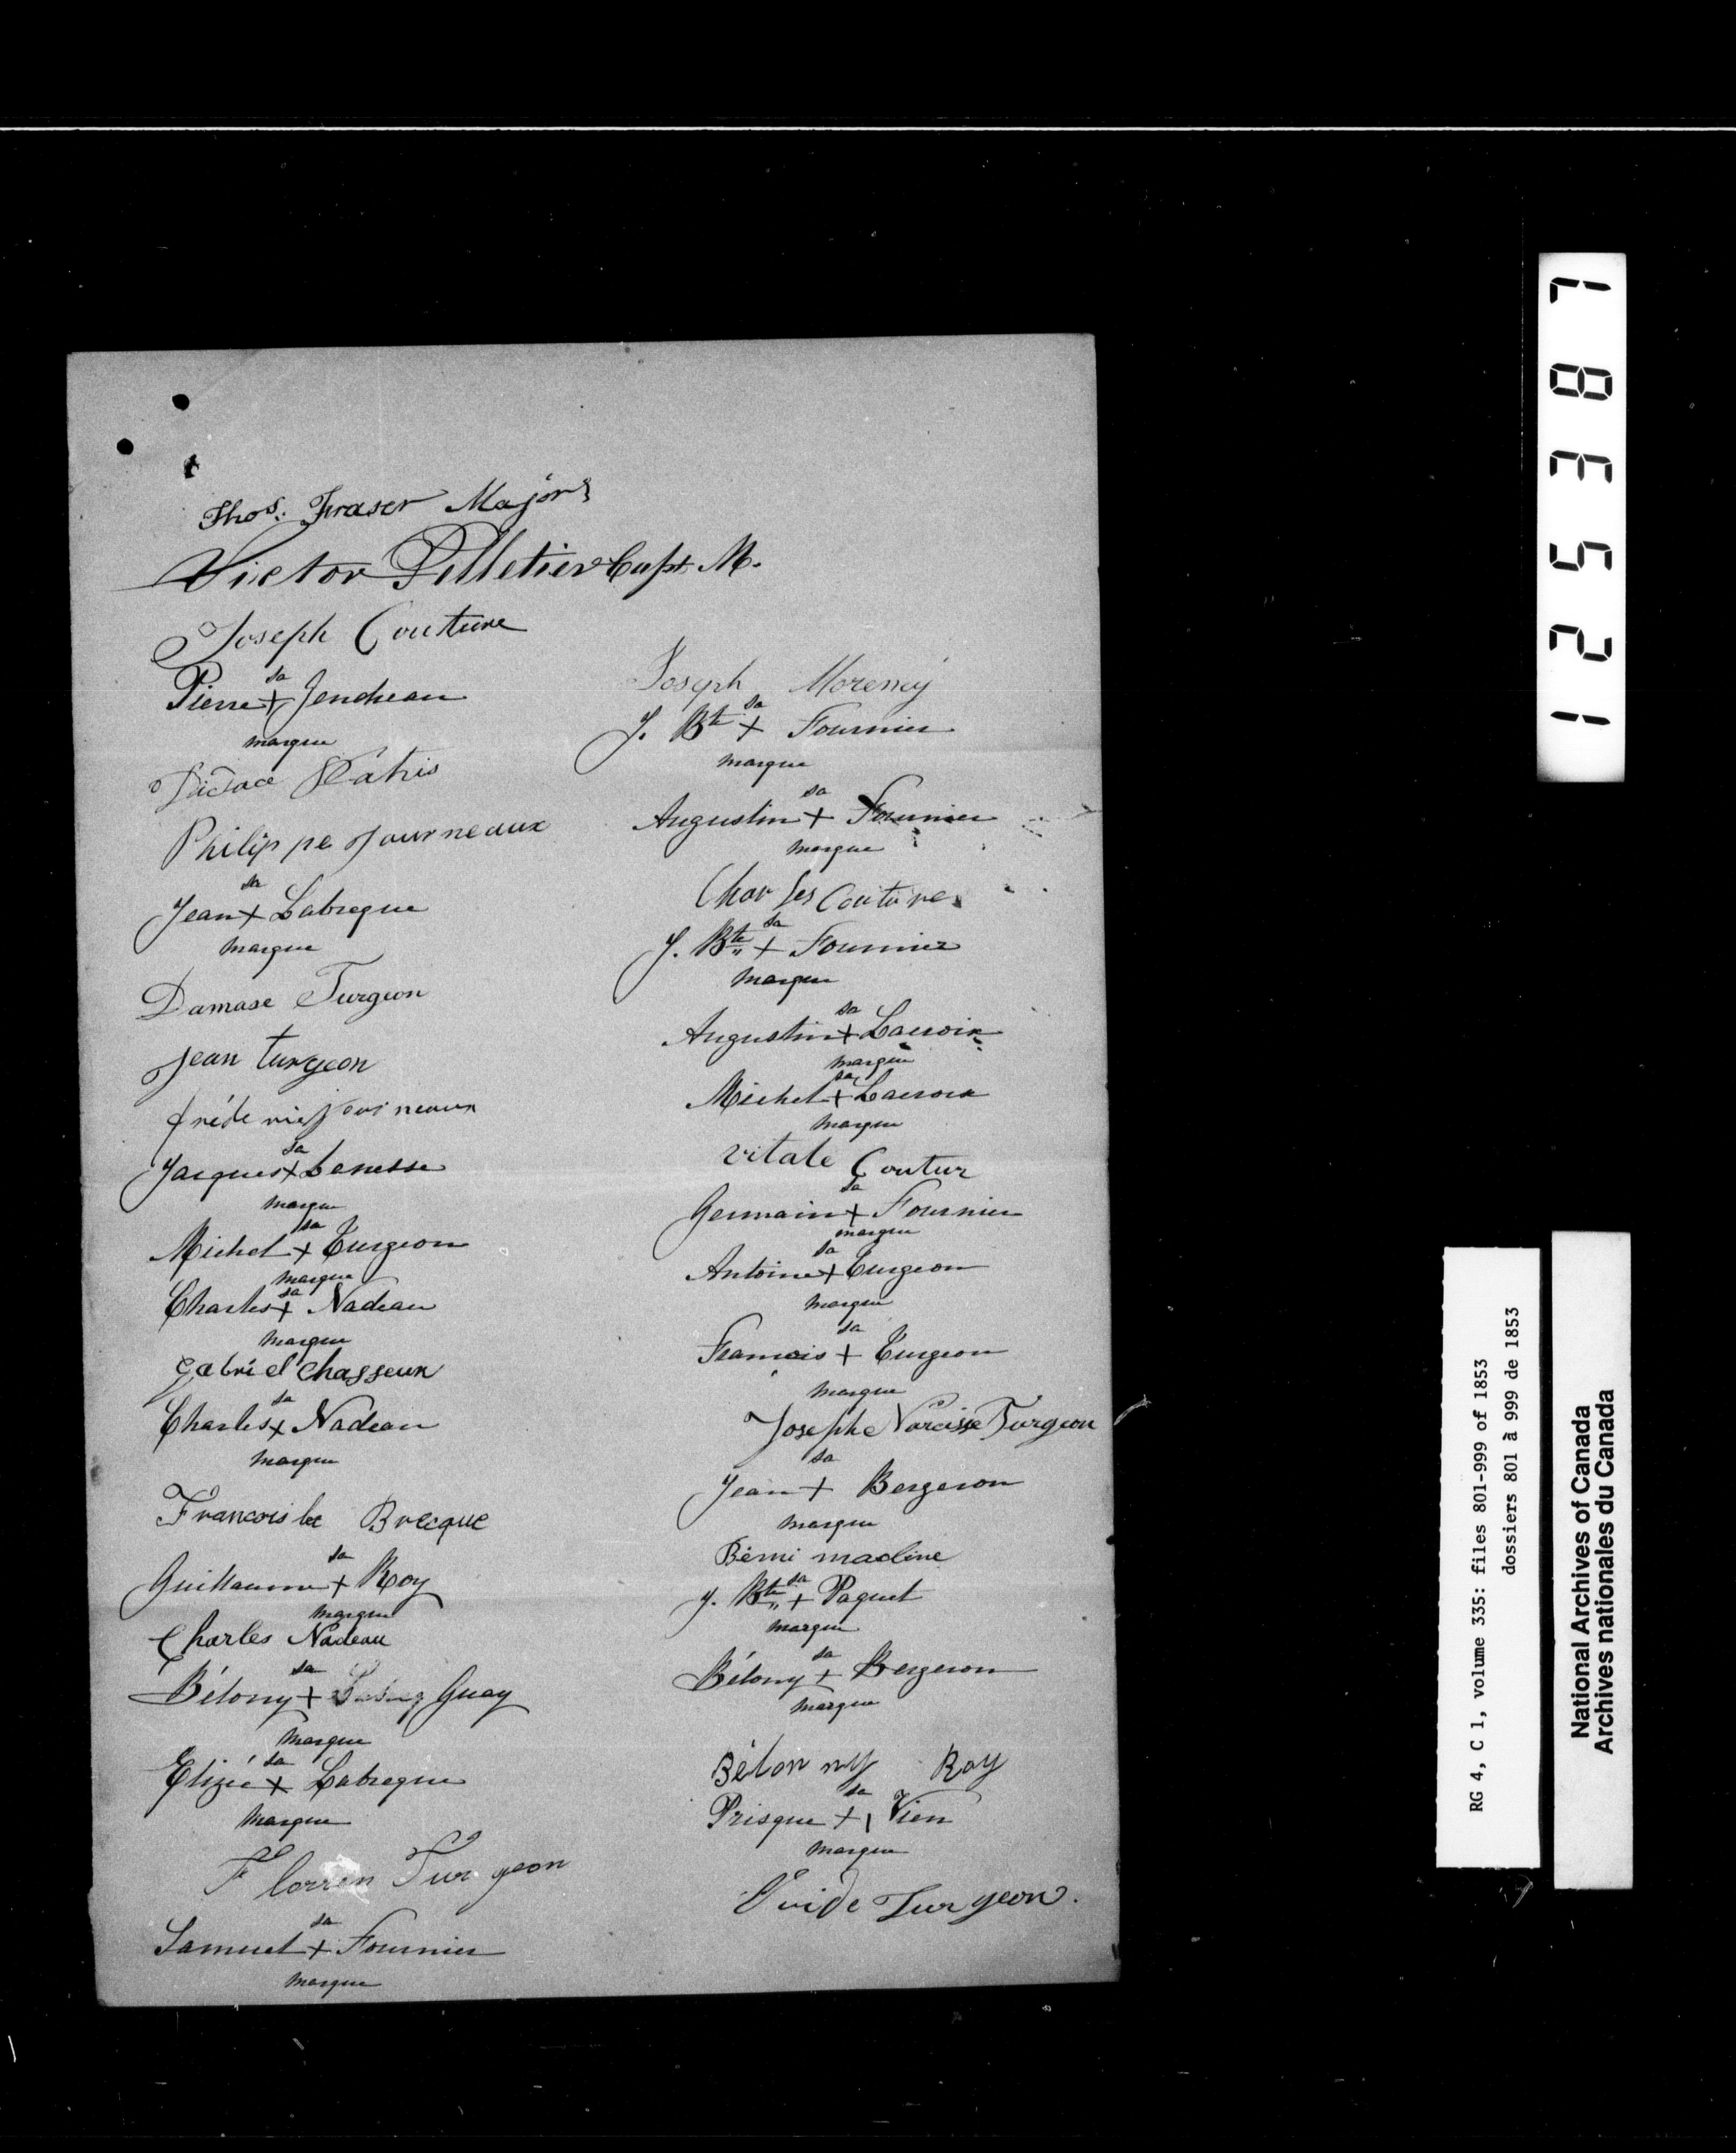 Thos. Fraser Major
Victor Pelletier Capt M.
Joseph Couture
sa
Pierre + Jendreau
marque
Philippe Journeaux
sa
Jean + Labreque
marque
Damase Turgeon
Jean turgeon
sa
Jacques +
marque
sa
Michel + Turgeon
marque
sa
Charles + Nadeau
marque
gabriel chasseur
sa
Charles + Nadeau
marque
Francois la Brecque
sa
Guillaume + Roy
marque
Charles Nadeau
sa
Bélony + Guay
marque
sa
Elizée + Labreque
marque
Florren Turgeon
sa
Samuel + Fournier
marque
Joseph Morency
sa
J. Bte + Fournier
marque
sa
Augustin + Fournier
marque
Charles Couture
sa
J. Bte + Fournier
marque
sa
Augustin + Lacroix
marque
sa
Michel + Lacroix
marque
vitale Coutur
sa
Germain + Fournier
marque
sa
Antoine + Turgeon
marque
sa
Francois + Turgeon
marque
Josephe Narcisse Turgeon
sa
Jean + Bergeron
marque
sa
J. Bte + Paquet
marque
sa
Bélony + Bergeron
marque
Bélonny Roy
sa
Prisque + Vien
marque
Ovide Turgeon.
125387
RG 4, C 1, volume 335: files 801-999 of 1853
dossiers 801 à 999 de 1853
National Archives of Canada
Archives nationales du Canada